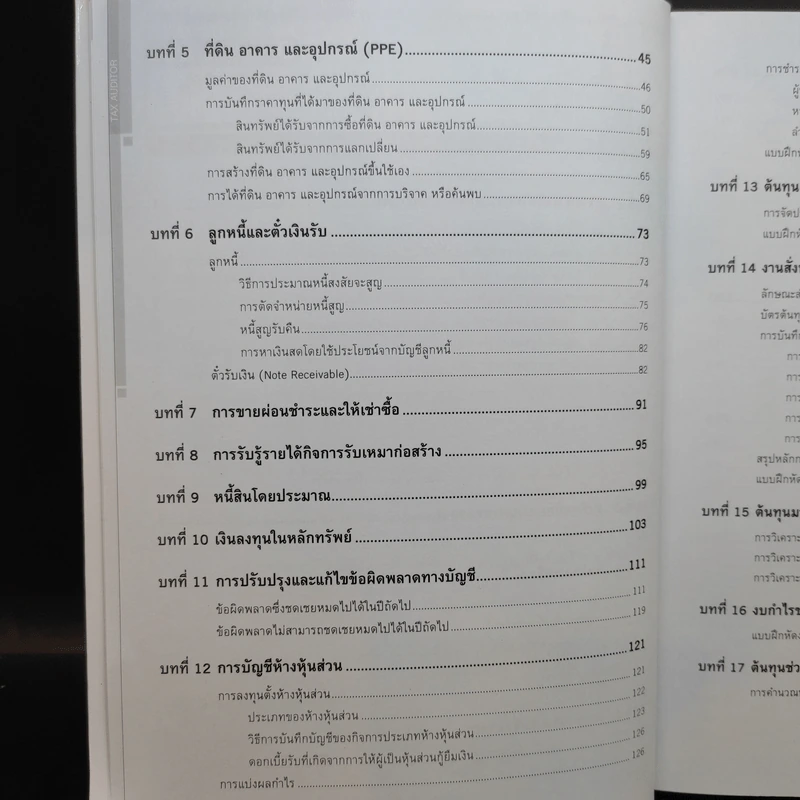 TAX AUDITOR
บทที่ 5 ที่ดิน อาคาร และอุปกรณ์ (PPE) 45
มูลค่าของที่ดิน อาคาร และอุปกรณ์ 46
การบันทึกราคาทุนที่ได้มาของที่ดิน อาคาร และอุปกรณ์ 50
สินทรัพย์ได้รับจากการซื้อที่ดิน อาคาร และอุปกรณ์ 51
สินทรัพย์ได้รับจากการแลกเปลี่ยน 59
การสร้างที่ดิน อาคาร และอุปกรณ์ขึ้นใช้เอง 65
การได้ที่ดิน อาคาร และอุปกรณ์จากการบริจาค หรือค้นพบ 69
บทที่ 6 ลูกหนี้และตั๋วเงินรับ 73
ลูกหนี้ 73
วิธีการประมาณหนี้สงสัยจะสูญ 74
การตัดจำหน่ายหนี้สูญ 75
หนี้สูญรับคืน 76
การหาเงินสดโดยใช้ประโยชน์จากบัญชีลูกหนี้ 82
ตั๋วรับเงิน (Note Receivable) 82
บทที่ 7 การขายผ่อนชำระและให้เช่าซื้อ 91
บทที่ 8 การรับรู้รายได้กิจการรับเหมาก่อสร้าง 95
บทที่ 9 หนี้สินโดยประมาณ 99
บทที่ 10 เงินลงทุนในหลักทรัพย์ 103
บทที่ 11 การปรับปรุงและแก้ไขข้อผิดพลาดทางบัญชี 111
ข้อผิดพลาดซึ่งชดเชยหมดไปได้ในปีถัดไป 111
ข้อผิดพลาดไม่สามารถชดเชยหมดไปได้ในปีถัดไป 119
บทที่ 12 การบัญชีห้างหุ้นส่วน 121
การลงทุนตั้งห้างหุ้นส่วน 121
ประเภทของห้างหุ้นส่วน 122
วิธีการบันทึกบัญชีของกิจการประเภทห้างหุ้นส่วน 123
ดอกเบี้ยรับที่เกิดจากการให้ผู้เป็นหุ้นส่วนกู้ยืมเงิน 126
การแบ่งผลกำไร 126
การชำร
ผู้
ห
ล้
แบบฝึกห
บทที่ 13 ต้นทุน
การจัดป
แบบฝึกหั
บทที่ 14 งานสั่ง
ลักษณะส
บัตรต้นทุ
การบันทึ
กา
การ
การ
การ
การ
สรุปหลักก
แบบฝึกหัด
บทที่ 15 ต้นทุนม
การวิเคราะ
การวิเคราะ
การวิเคราะ
บทที่ 16 งบกำไรข
แบบฝึกหัดง
บทที่ 17 ต้นทุนช่ว
การคำนวณ